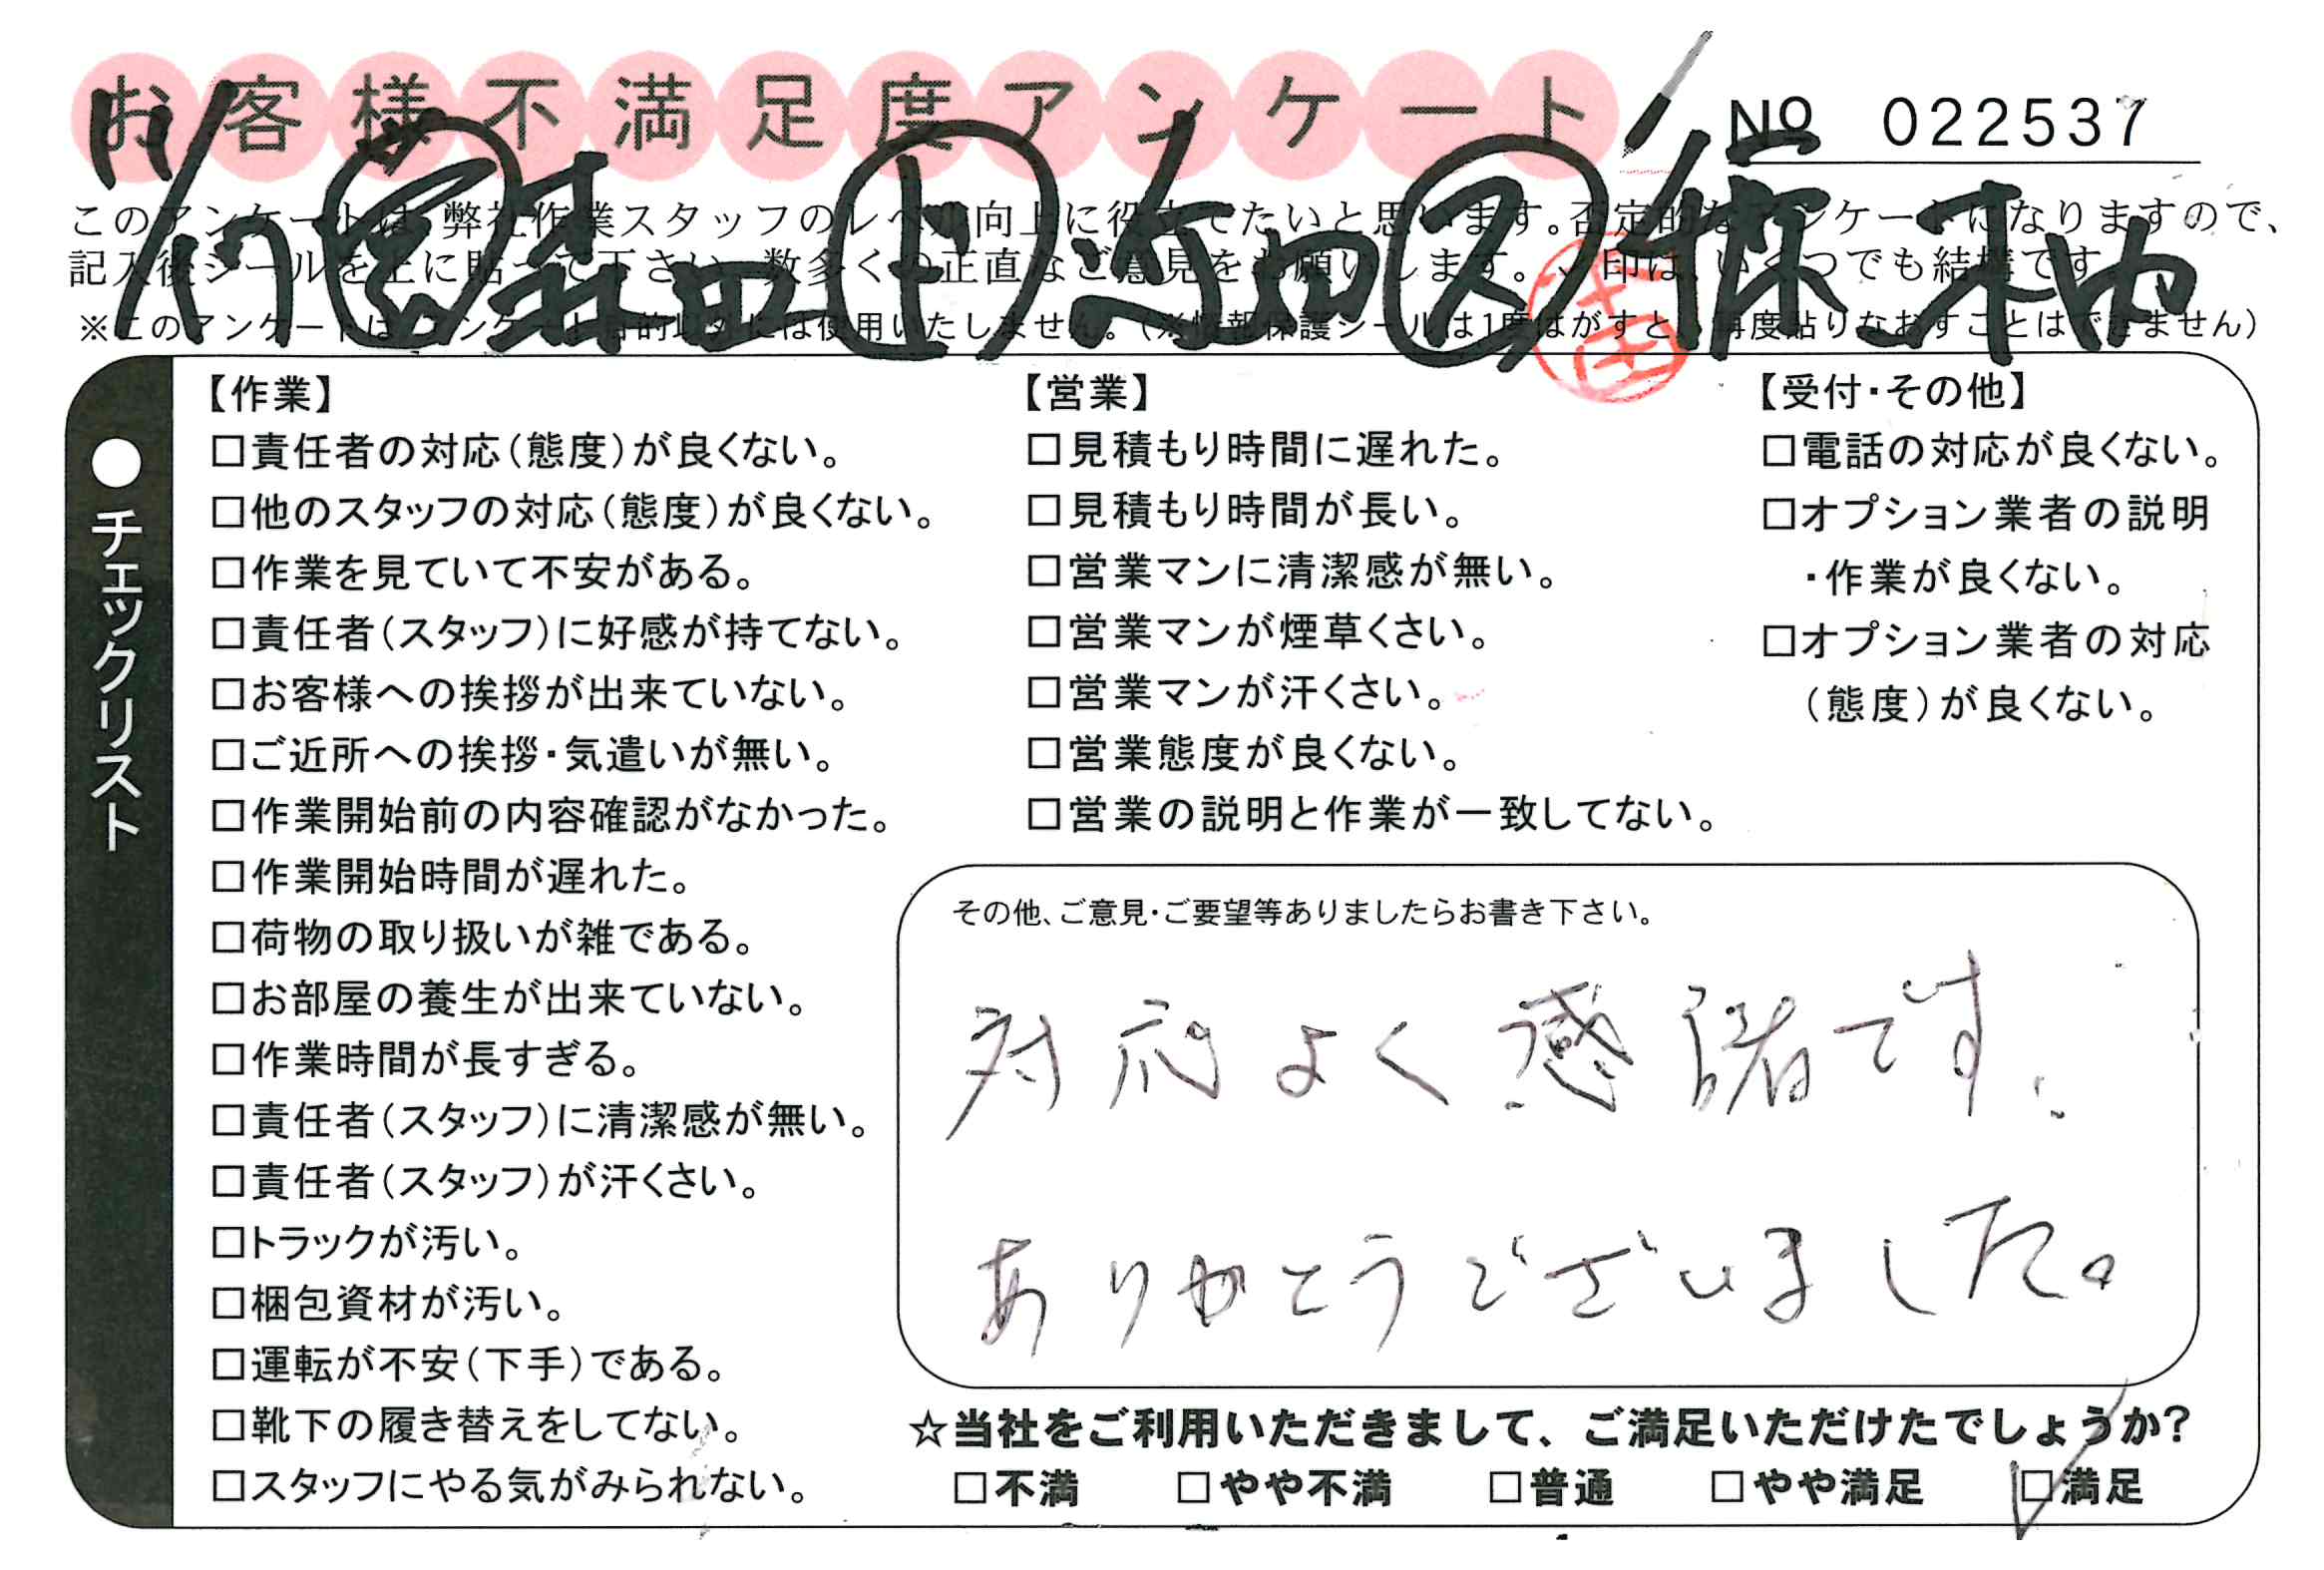 お客様不満足度アンケート
№ 022537
11/17 営 森田 ド 追加 ス
このアンケートは、弊社作業スタッフのレベル向上に役立てたいと思います。否定的なアンケートになりますので、
記入後シールを上に貼って下さい。数多くの正直なご意見をお願いします。✓印は、いくつでも結構です。
※このアンケートは、アンケート目的以外には使用いたしません。(※情報保護シールは1度はがすと、再度貼りなおすことはできません)
●チェックリスト
【作業】
□責任者の対応(態度)が良くない。
□他のスタッフの対応(態度)が良くない。
□作業を見ていて不安がある。
□責任者(スタッフ)に好感が持てない。
□お客様への挨拶が出来ていない。
□ご近所への挨拶・気遣いが無い。
□作業開始前の内容確認がなかった。
□作業開始時間が遅れた。
□荷物の取り扱いが雑である。
□お部屋の養生が出来ていない。
□作業時間が長すぎる。
□責任者(スタッフ)に清潔感が無い。
□責任者(スタッフ)が汗くさい。
□トラックが汚い。
□梱包資材が汚い。
□運転が不安(下手)である。
□靴下の履き替えをしてない。
□スタッフにやる気がみられない。
【営業】
□見積もり時間に遅れた。
□見積もり時間が長い。
□営業マンに清潔感が無い。
□営業マンが煙草くさい。
□営業マンが汗くさい。
□営業態度が良くない。
□営業の説明と作業が一致してない。
【受付・その他】
□電話の対応が良くない。
□オプション業者の説明
・作業が良くない。
□オプション業者の対応
(態度)が良くない。
その他、ご意見・ご要望等ありましたらお書き下さい。
対応よく感謝です。
ありがとうございました。
☆当社をご利用いただきまして、ご満足いただけたでしょうか?
□不満 □やや不満 □普通 □やや満足 □満足